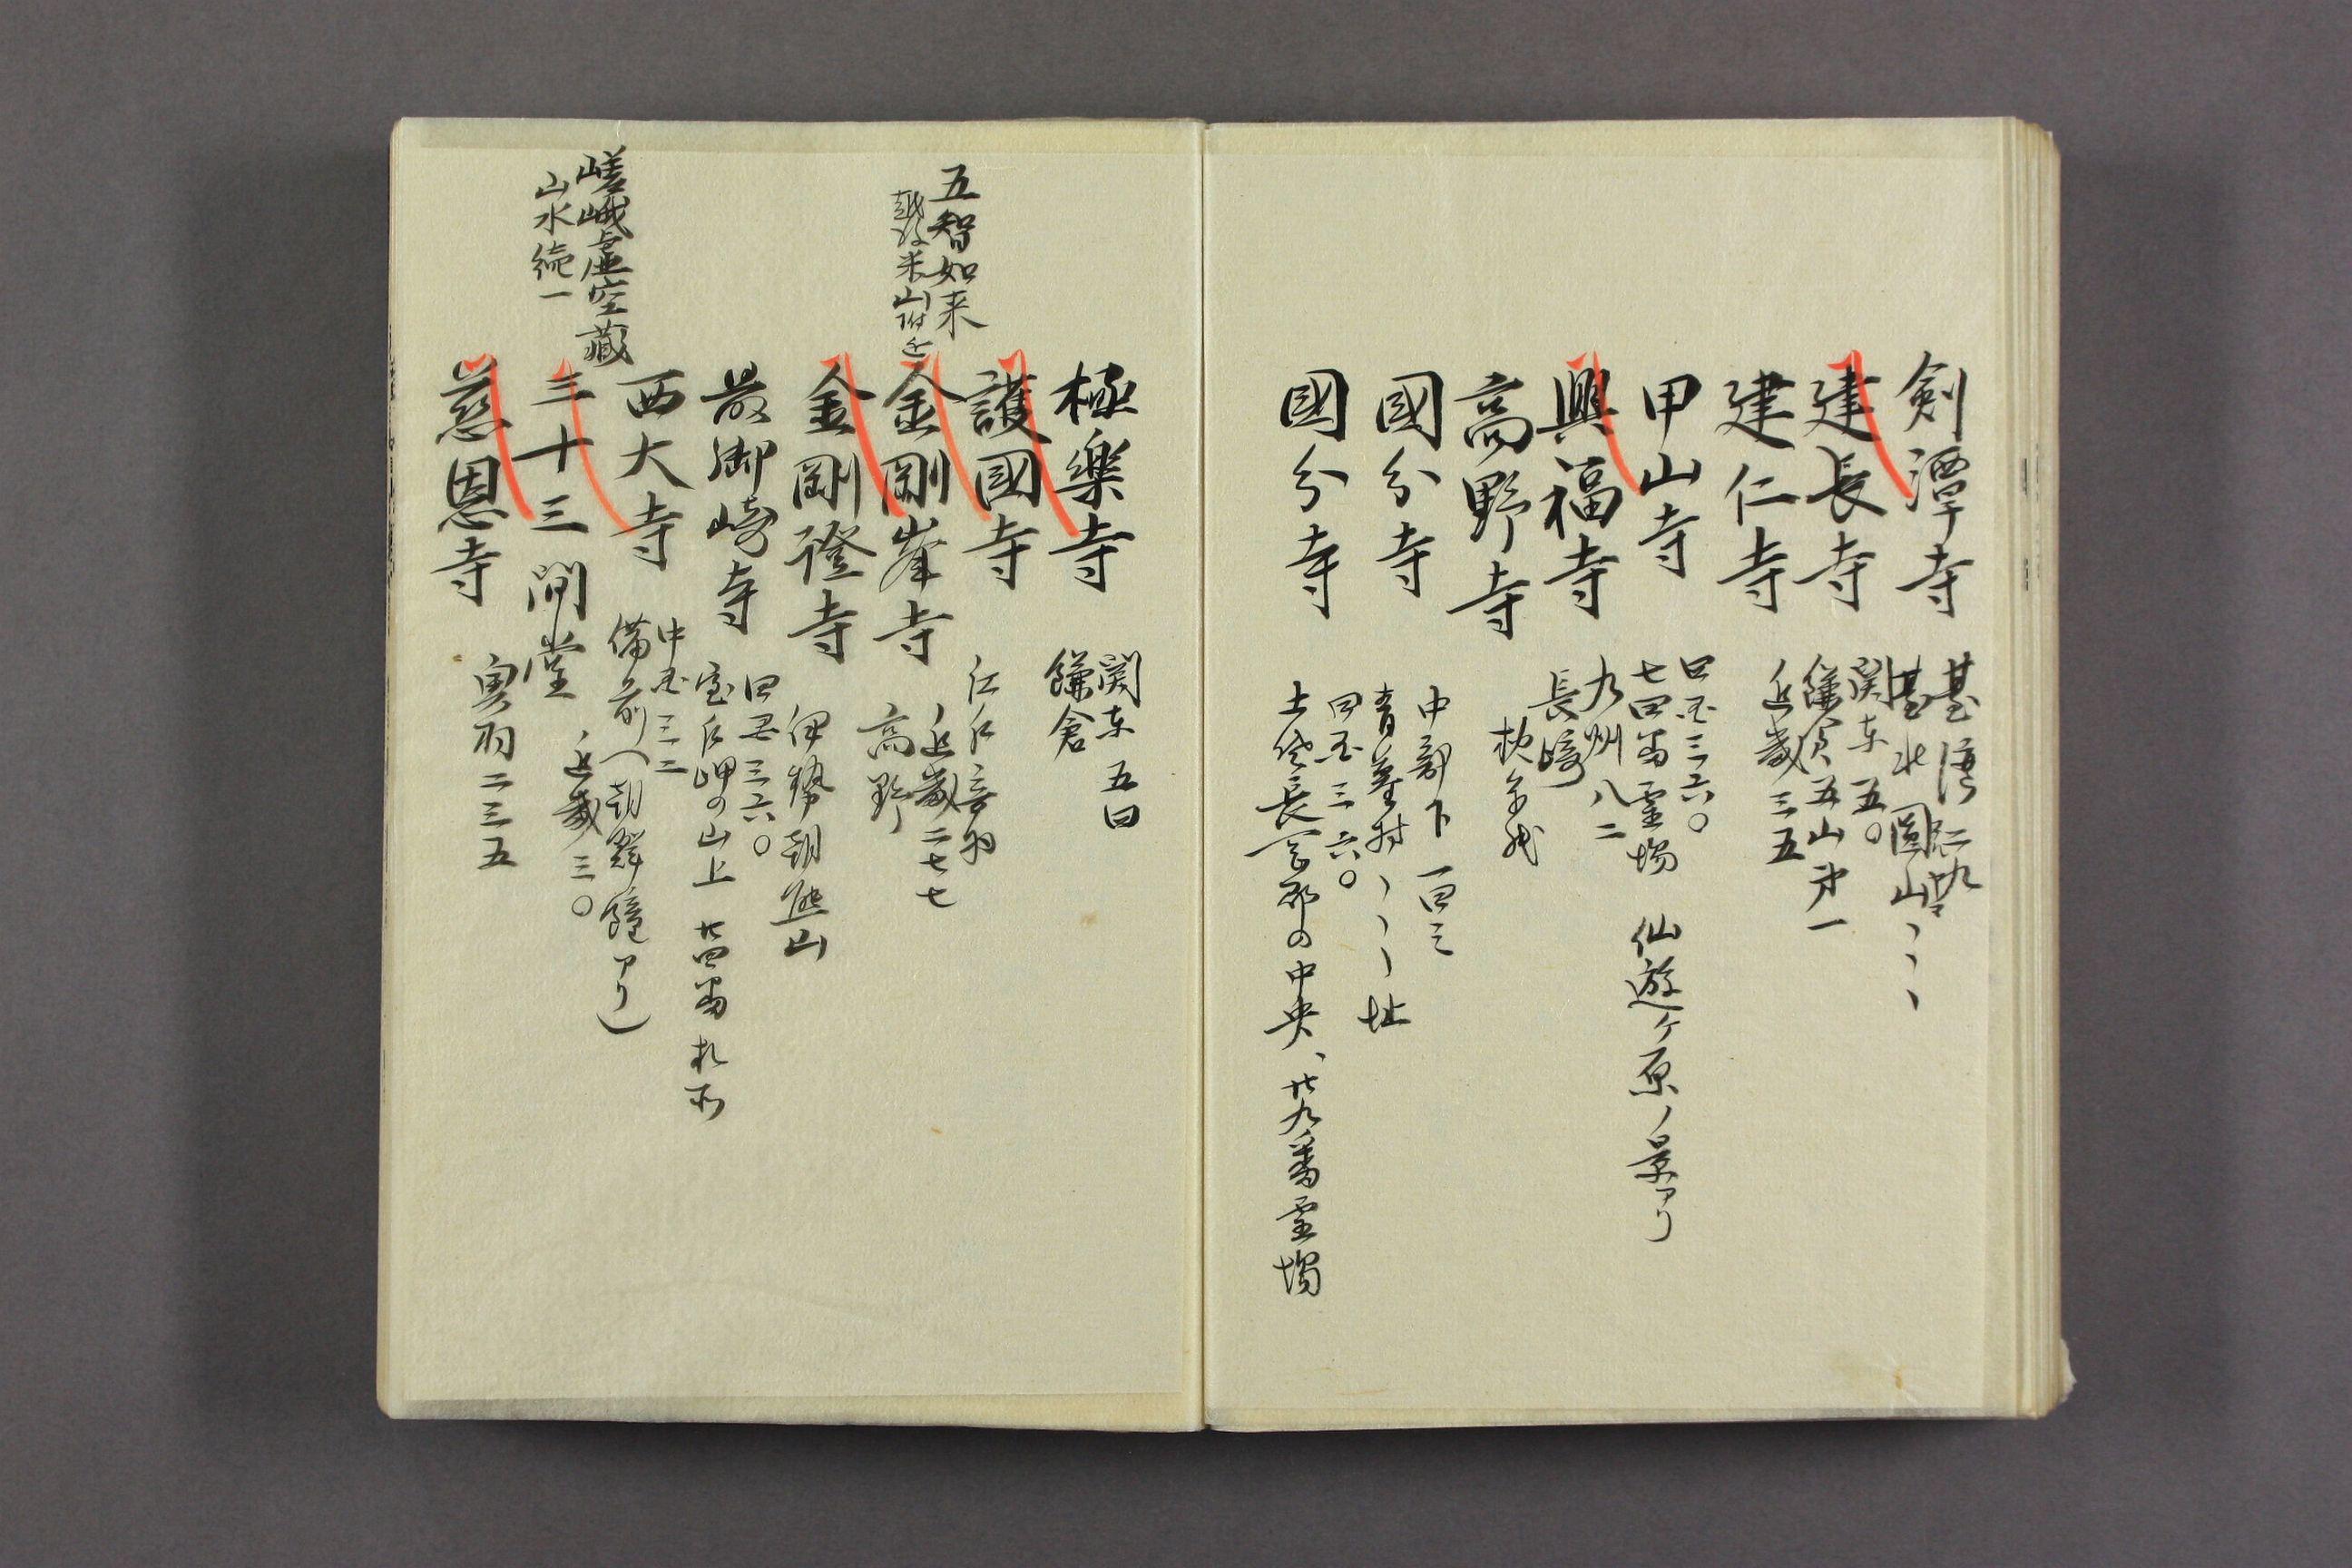 剣潭寺
臺湾
臺北圓山、、、
建長寺
関東 五〇
鎌倉五山第一
建仁寺
近畿 三五
甲山寺
四国 三六〇
七四番霊場 仙遊ヶ原ノ景アリ
興福寺
九州 八二
長崎
高野寺
國分寺
中部下 一四三
青墓村、、、、址
國分寺
四国 三六〇
土佐長岡郡の中央、廿九番霊場
極楽寺
関東 五四
鎌倉
護國寺
五智如来
金剛峯寺
近畿 二七七
高野
金剛證寺
伊勢朝熊山
最御崎寺
四国 三六〇
室戸岬の山上 廿四番札所
西大寺
中国 三二
備前(朝鮮鐘アリ)
嵯峨虚空蔵
山水續一
三十三間堂
近畿 三〇
慈恩寺
奥羽 二三五